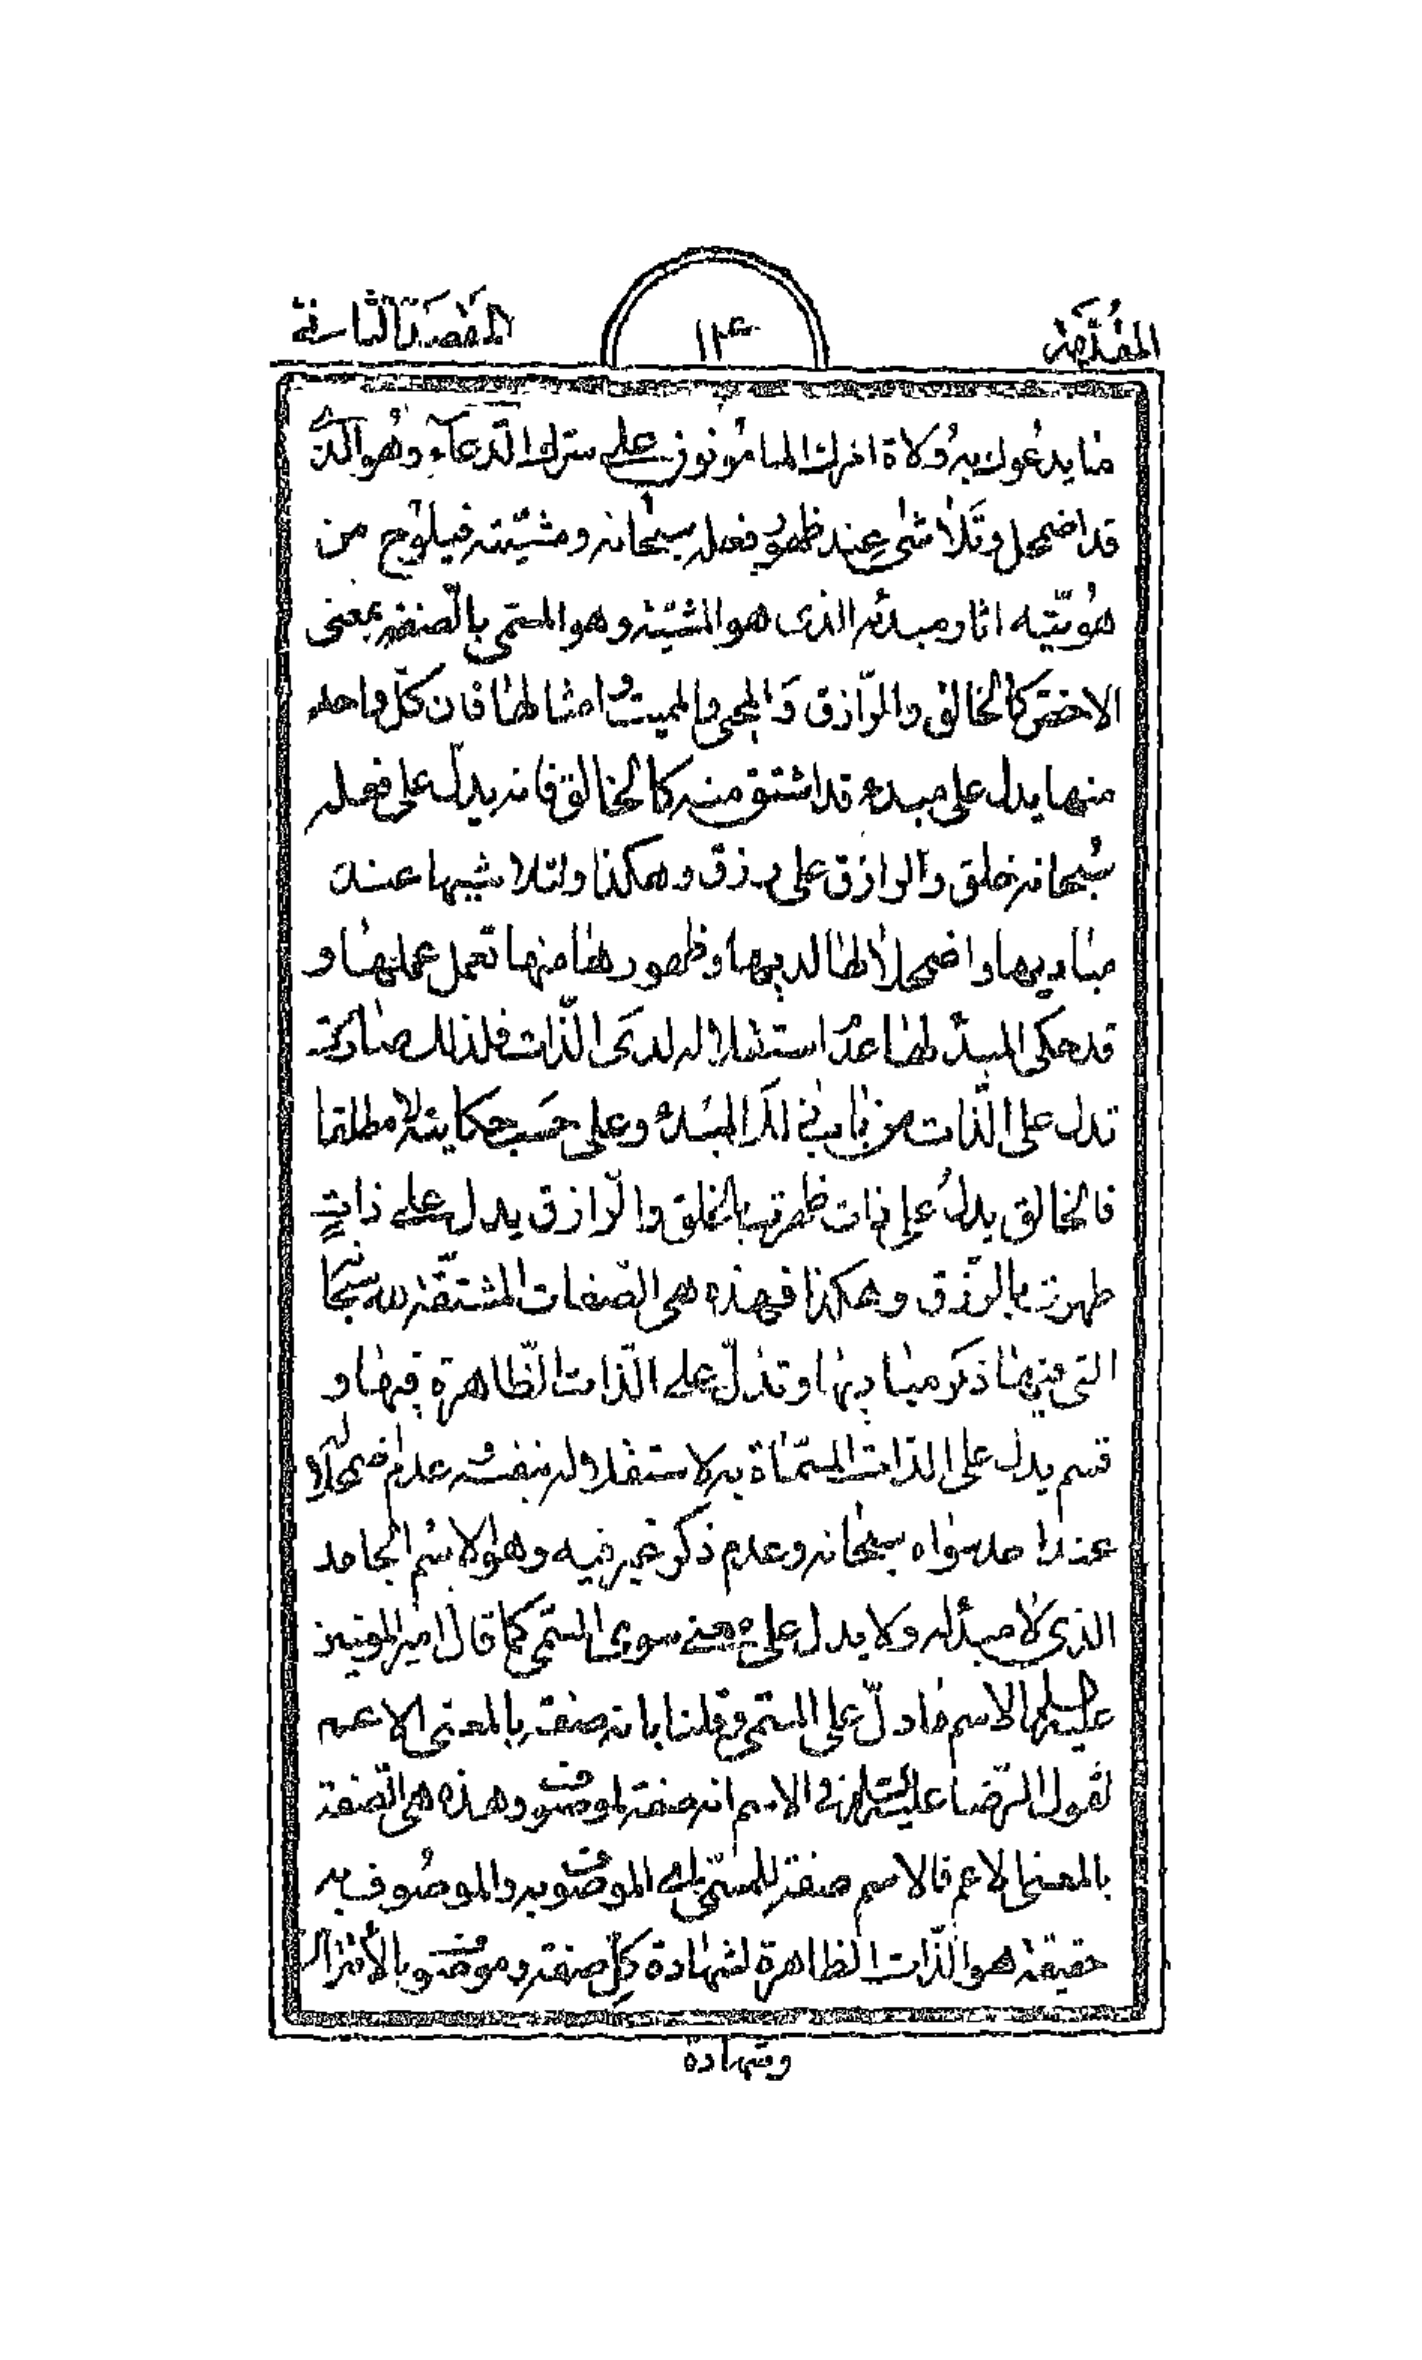 المقدمة
١٢٤
المقصد الثانية
ما يدعوك به ولاة امرك المامونون على سرك الدعآء وهو الذي
قد اضمحل وتلاشى عند ظهور فعله سبحانه ومشيته فيلوح من
هويته اثار مبدئه الذى هو المشية وهو المسمى بالصفة بمعنى
الاخص كالخالق والرازق والمحيى والمميت وامثالها فان كل واحد
منها يدل على مبدء قد اشتق منه كالخالق فانه يدل على فعله
سبحانه خلق والرازق على رزق وهكذا ولتلاشيها عند
مباديها واضمحلالها لديها وظهورها منها تعمل عملها و
قد حكى المبدء لها عدم استقلاله لدى الذات فلذلك صارت
تدل على الذات من باب ذلك المبدء وعلى حسب حكايته لا مطلقا
فالخالق يدل على ذات ظهرت بالخلق والرازق يدل على ذات
ظهرت بالرزق وهكذا فهذه هى الصفات المشتقة لله سبحانه
التى فيها ذكر مباديها وتدل على الذات الظاهرة فيها و
قسم يدل على الذات المسماة به لاستقلاله بنفسه وعدم اضمحلاله
عند احد سواه سبحانه وعدم ذكر غير فيه وهو الاسم الجامد
الذى لا مبدء له ولا يدل على معنى سوى المسمى كما قال امير المؤمنين
عليه السلام الاسم ما دل على المسمى وقلنا بانه صفة بالمعنى الاعم
لقول الرضا عليه السلام فى الاسم انه صفة لموصوف وهذه هى الصفة
بالمعنى الاعم فالاسم صفة للمسمى الموصوف به والموصوف به
حقيقة هو الذات الظاهرة لشهادة كل صفة وموصوف بالاقتران
وشهادة